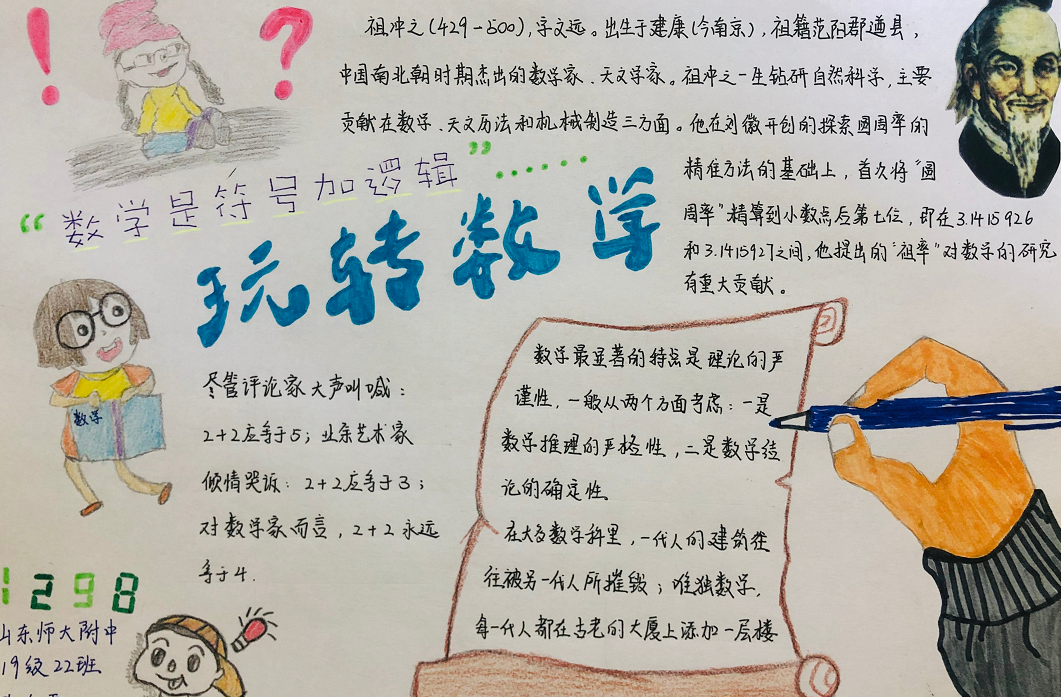 祖冲之(429-500),字文远。出生于建康(今南京),祖籍范阳郡遒县,
中国南北朝时期杰出的数学家、天文学家。祖冲之一生钻研自然科学,主要
贡献在数学、天文历法和机械制造三方面。他在刘徽开创的探索圆周率的
精准方法的基础上,首次将“圆
周率”精算到小数点后第七位,即在3.1415926
和3.1415927之间,他提出的“祖率”对数学的研究
有重大贡献。
! ?
“数学是符号加逻辑”······
玩转数学
数学
尽管评论家大声叫喊:
2+2应等于5;业余艺术家
倾情哭诉:2+2应等于3;
对数学家而言,2+2永远
等于4.
数学最显著的特点是理论的严
谨性,一般从两个方面考虑:一是
数学推理的严格性,二是数学结
论的确定性
在大多数学科里,一代人的建筑往
往被另一代人所摧毁;唯独数学,
每一代人都在古老的大厦上添加一层楼
1298
山东师大附中
19级22班